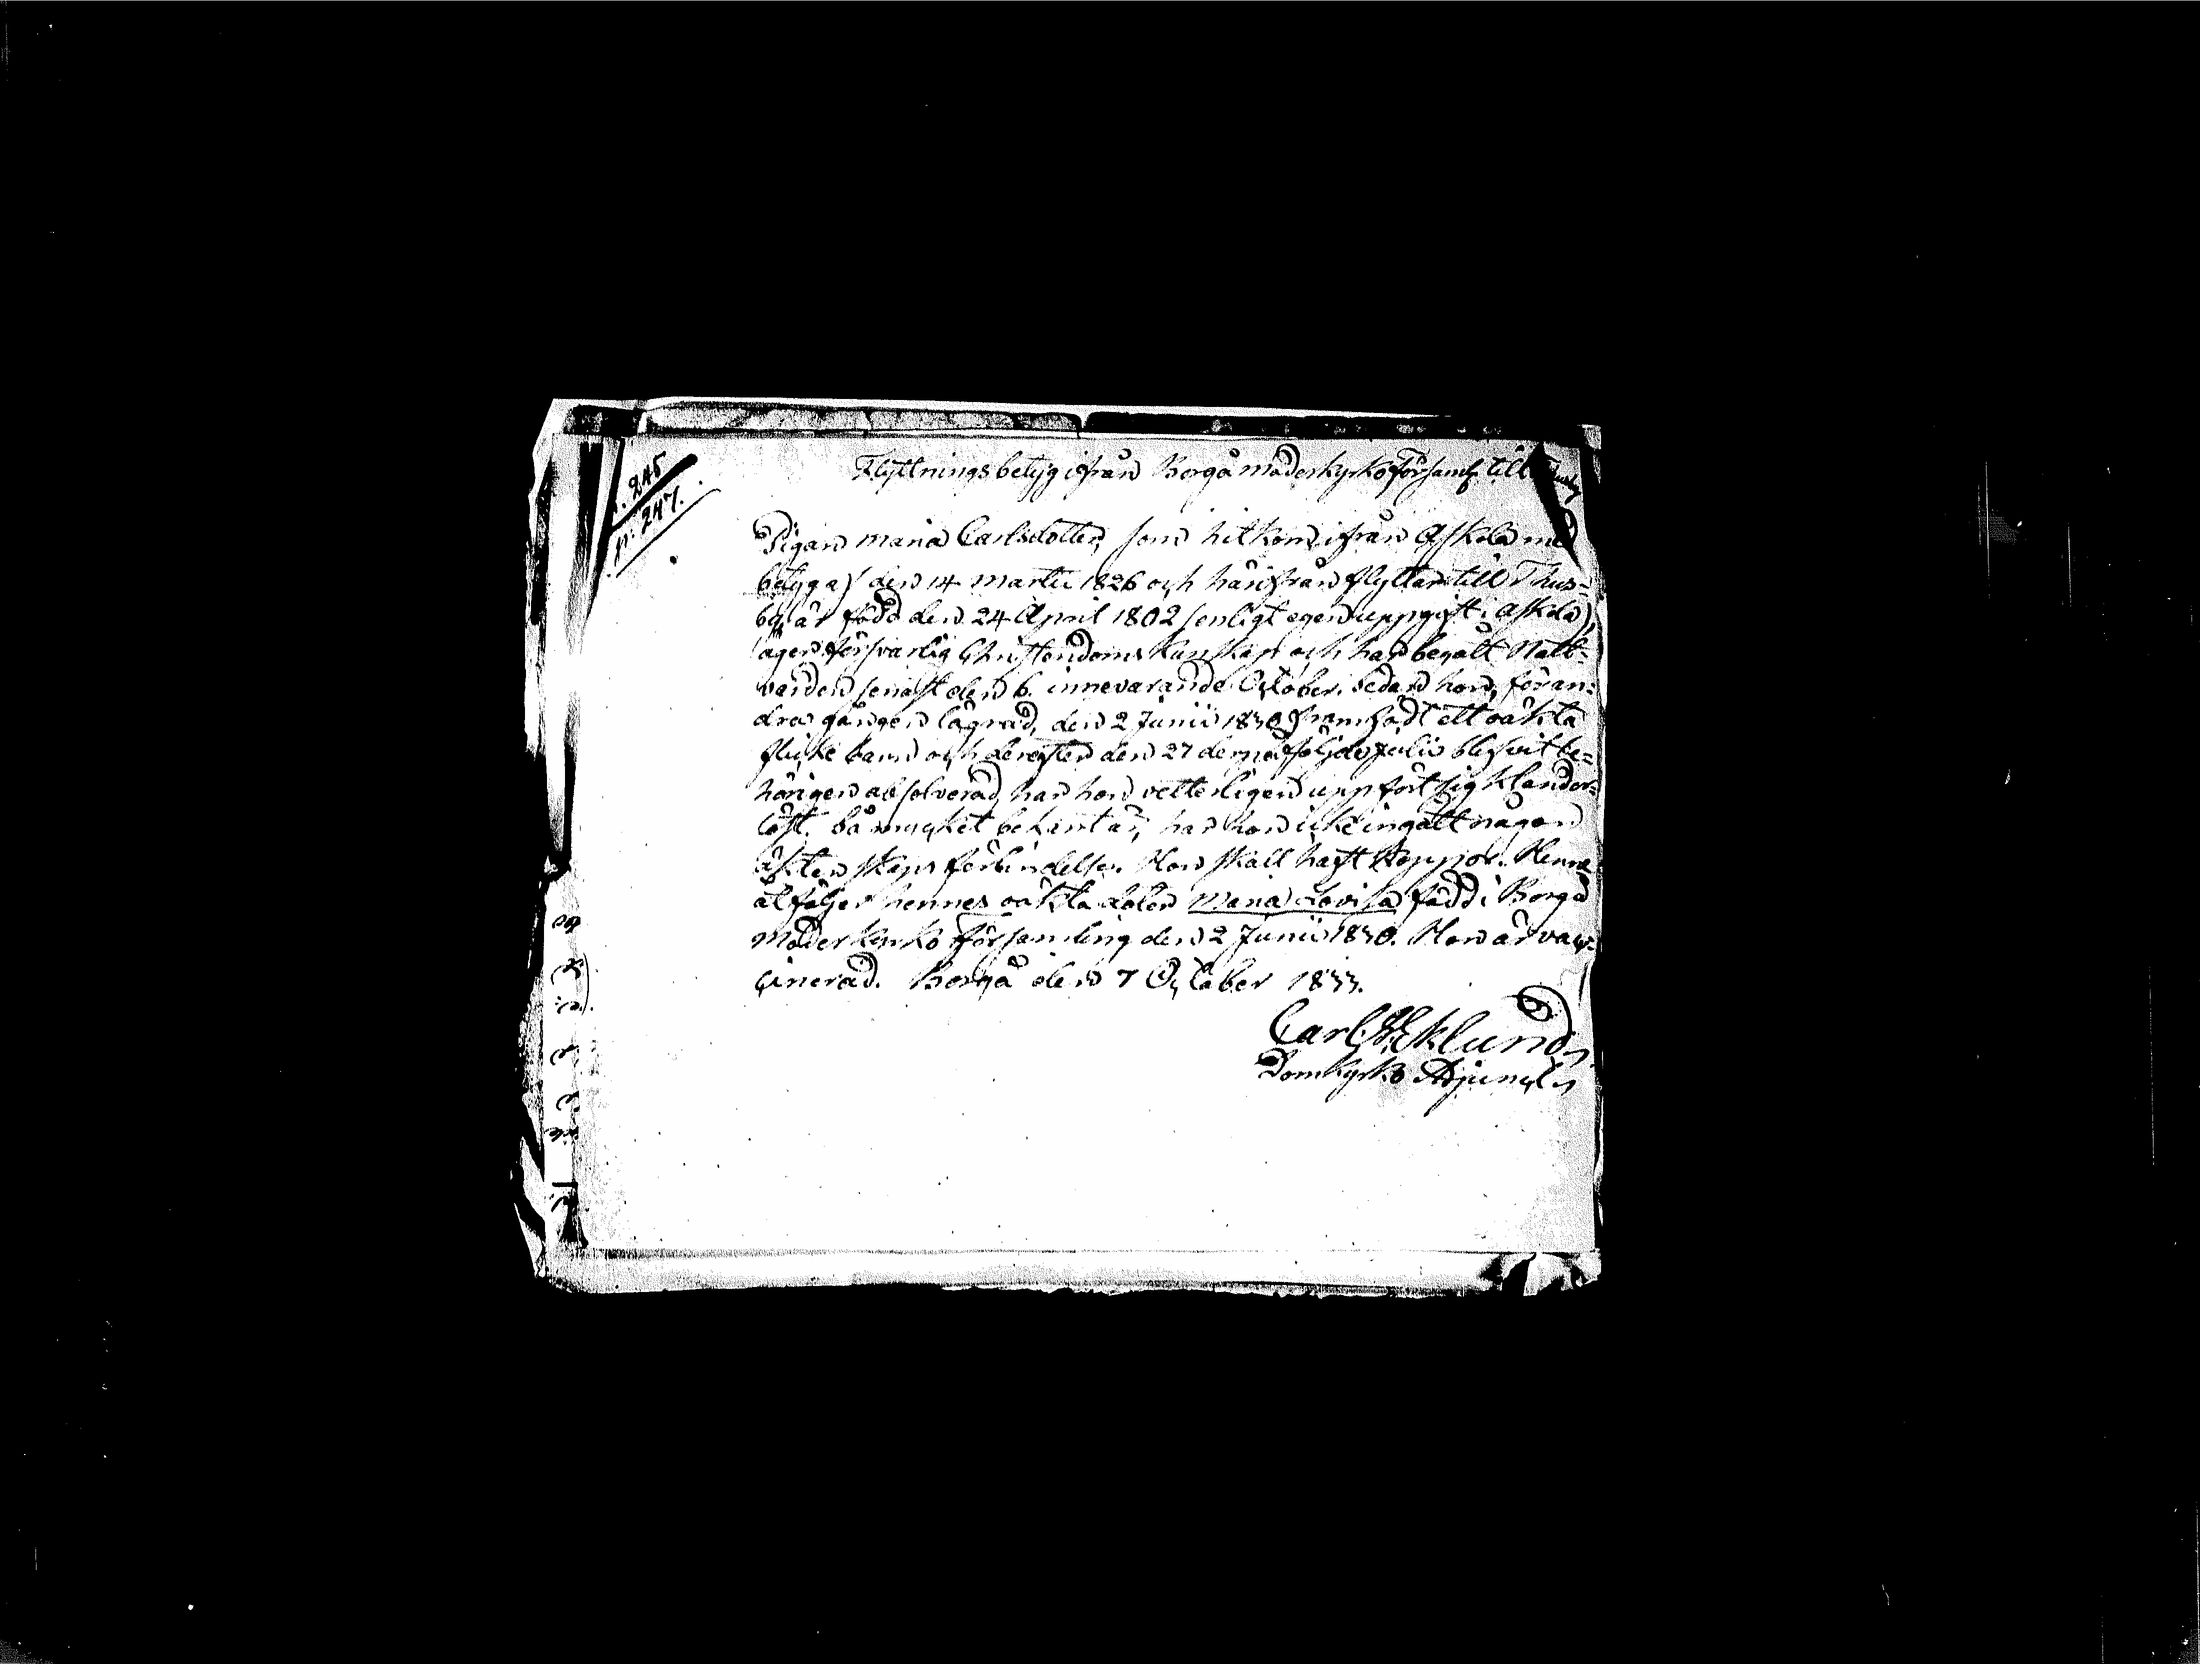 245
p: 247.
Flyttningsbetyg ifrån Borgå moderkyrkoförsaml. till Thusby
Pigan Maria Carlsdotter, som hitkom ifrån Askola med
betyg af den 14 Martii 1826 och härifrån flyttar till Thus=
by, är född den 24 April 1802 (enligt egen uppgift i Askola),
äger försvarlig Christendoms kunskap och har begått Natt=
varden senast den 6. innevarande October. Sedan hon, för an=
dra gången lägrad, den 2 Junii 1830 framfödt ett oäkta
flicke barn och derefter den 27 derpåföljde Julii blifvit be=
hörigen absolverad, har hon vetterligen uppfört sig klander=
löst. Så mycket bekant är, har hon icke ingått någon
äktenskaps förbindelse. Hon skall haft koppor. Henne
åtföljer hennes oäkta dotter Maria Lovisa född i Borgå
Moderkyrko församling den 2 Junii 1830. Hon är vac=
cinerad. Borgå den 7 October 1833.
Carl Eklund,
Domkyrko Adjunct,